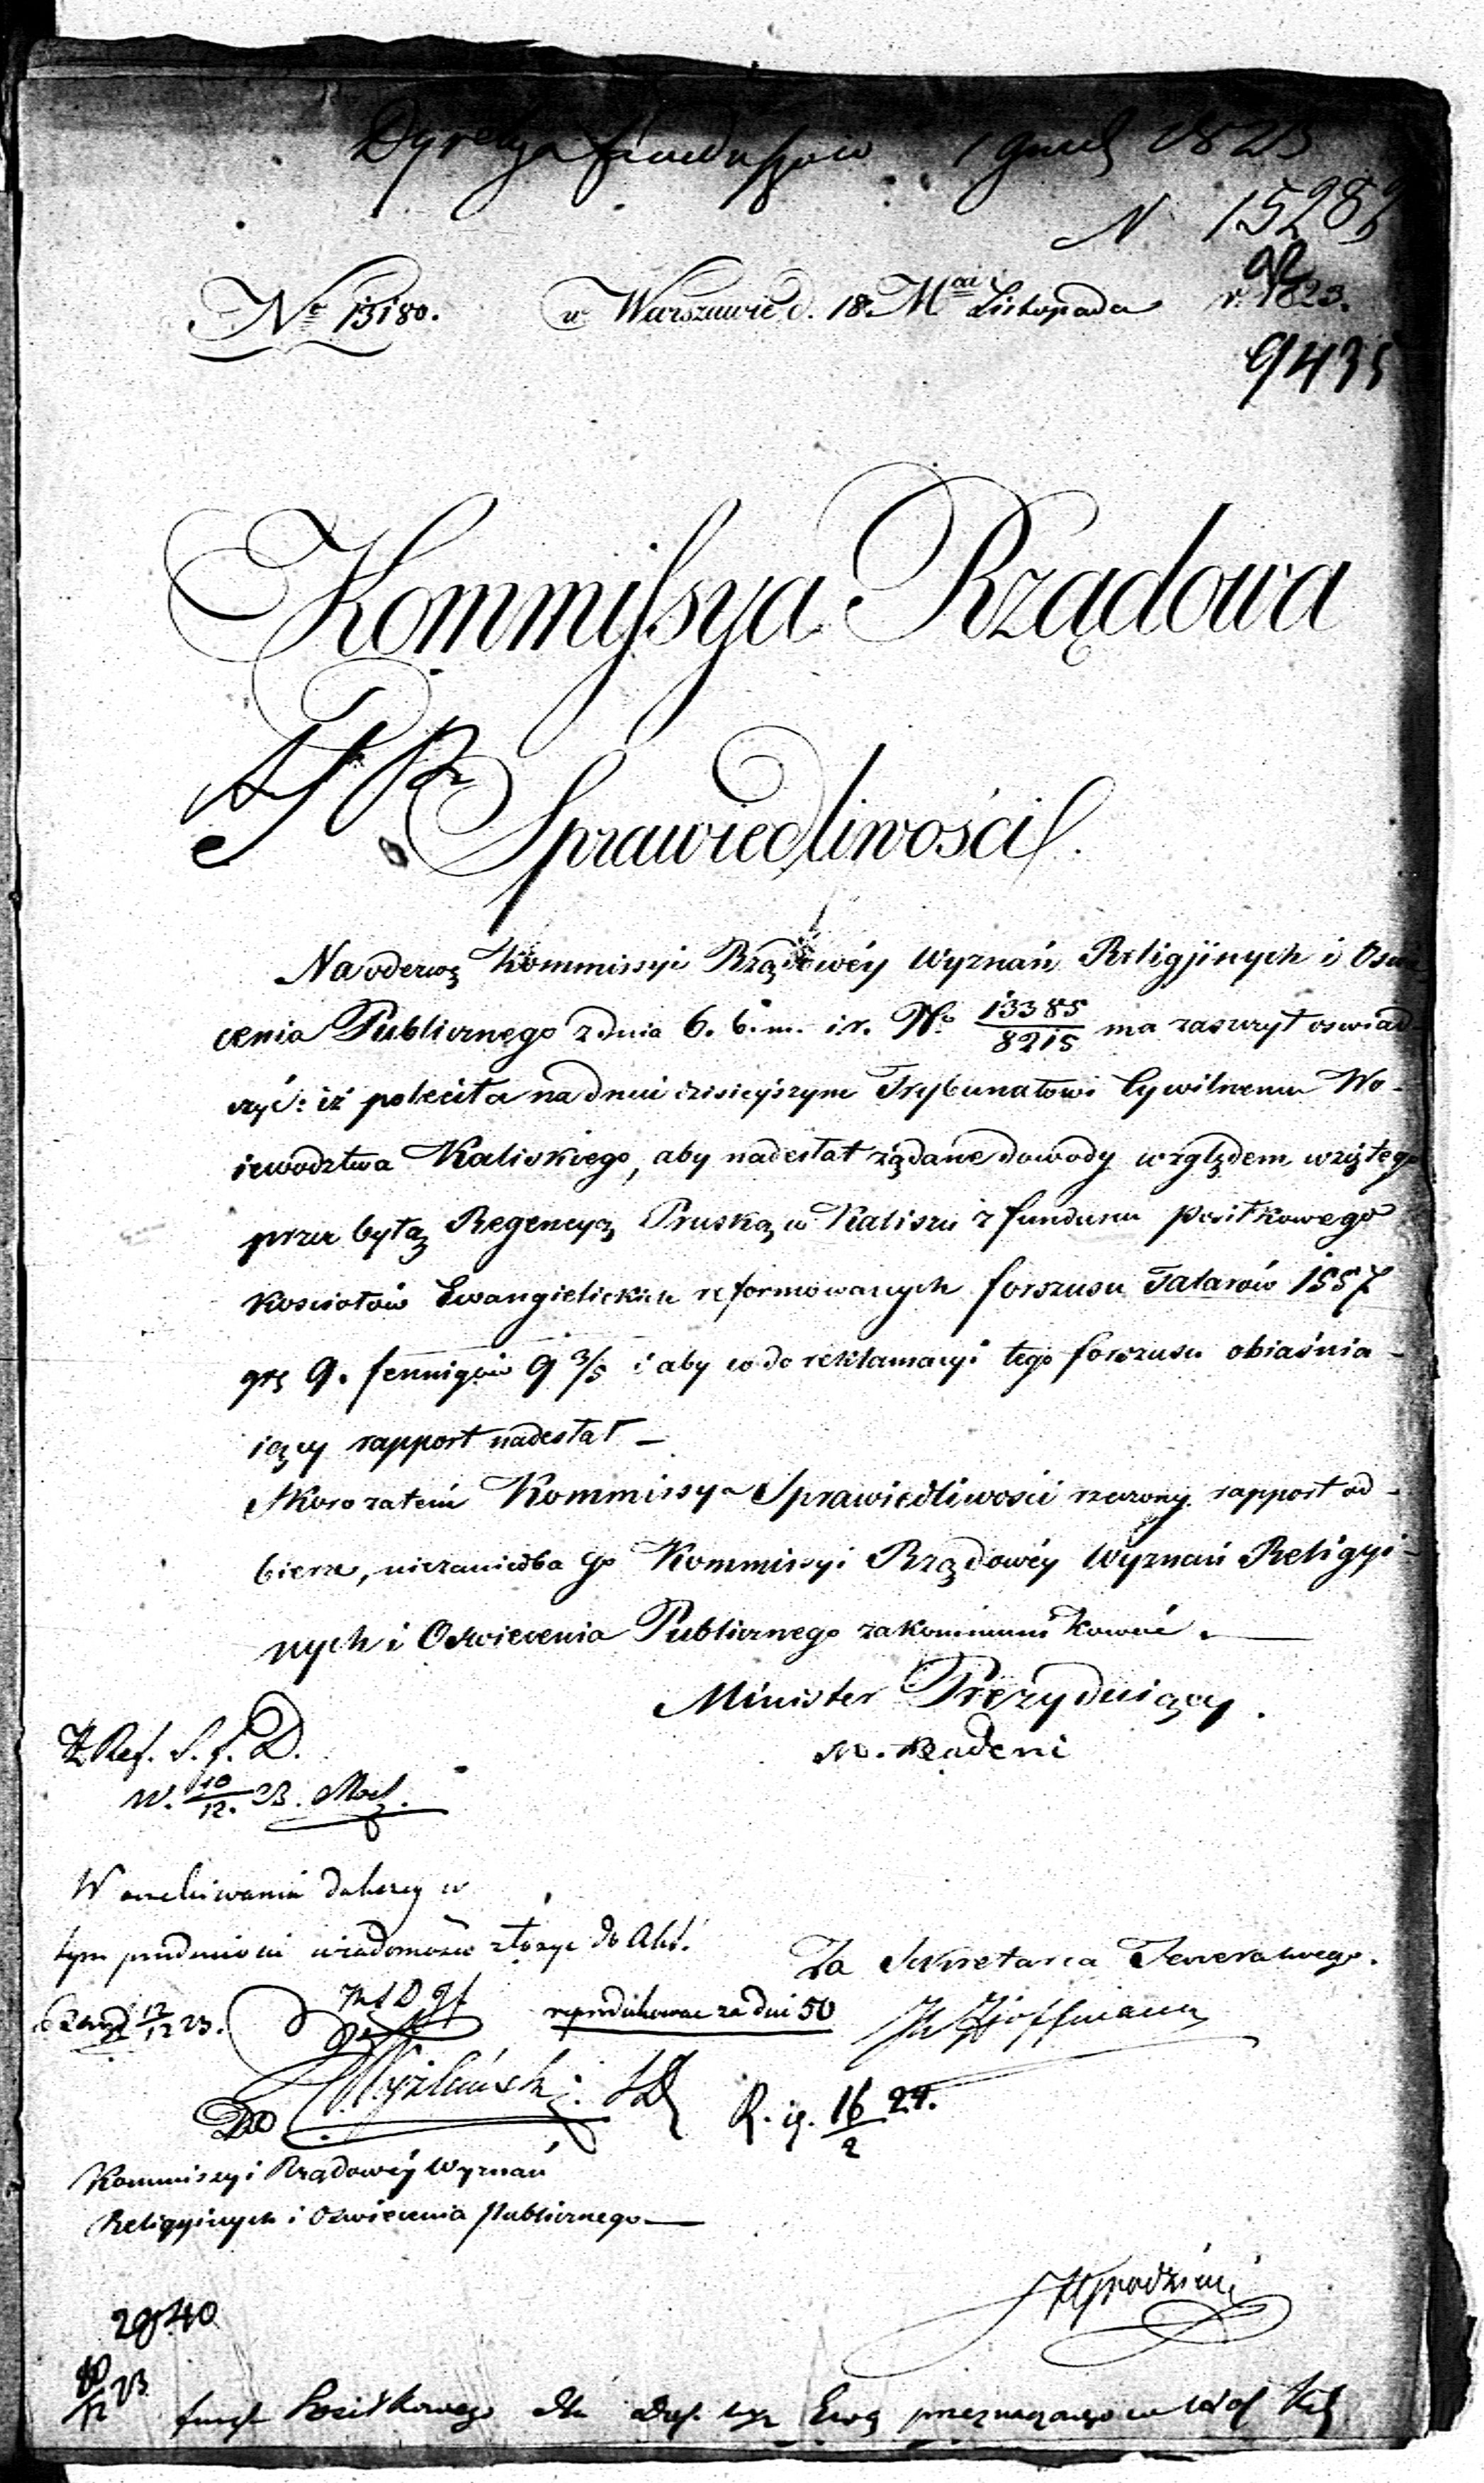 Dyrekcya funduszów 1 grud 1823
N 15282
No 13180. w Warszawie d. 18. Mca Listopada r. 1823.
9435
Kommissya Rządowa
Sprawiedliwości.
Na odezwę Kommissyi Rządowéy Wyznań Religijnych i Oswie
cenia Publicznego z dnia 6. b. m. i r. No 13385/8215 ma zaszczyt oswiad-
czyć: iż poleciła na dniu dzisieyszym Trybunałowi Cywilnemu Wo-
iewodztwa Kaliskiego, aby nadesłał żądane dowody względem wziętego
przez byłą Regencyą Pruską w Kaliszu z funduszu posiłkowego
Kosciołów Ewangielickich reformowanych forszusu Talarów 1557
grę 9. fennigów 9 3/5 i aby co do reklamacyi tego forszusu obiaśnia-
iący rapport nadesłał _
Skoro zatem Kommissya Sprawiedliwości rzeczony rapport od-
bierze, niezaniedba go Kommissyi Rządowéy Wyznań Religyi-
nych i Oswiecenia Publicznego zakommunikować. _
Minister Prezyduiący.
M. Badeni
Ref. S. f. D.
W. 10/12. 23.
W oczekiwaniu dalszey w
tym przedmiocie wiadomości złożyć do Akt.
Za Sekretarza Jeneralnego.
12/12 23.
reprodukować za dni 50
Hoffmann
R. ig. 16/2 24.
Do
Kommissyi Rządowéy Wyznań
Religyinych i Oswiecenia Publicznego _
10/12 23
Posiłkowego dla wyz Ewa przeznaczonego w Kal